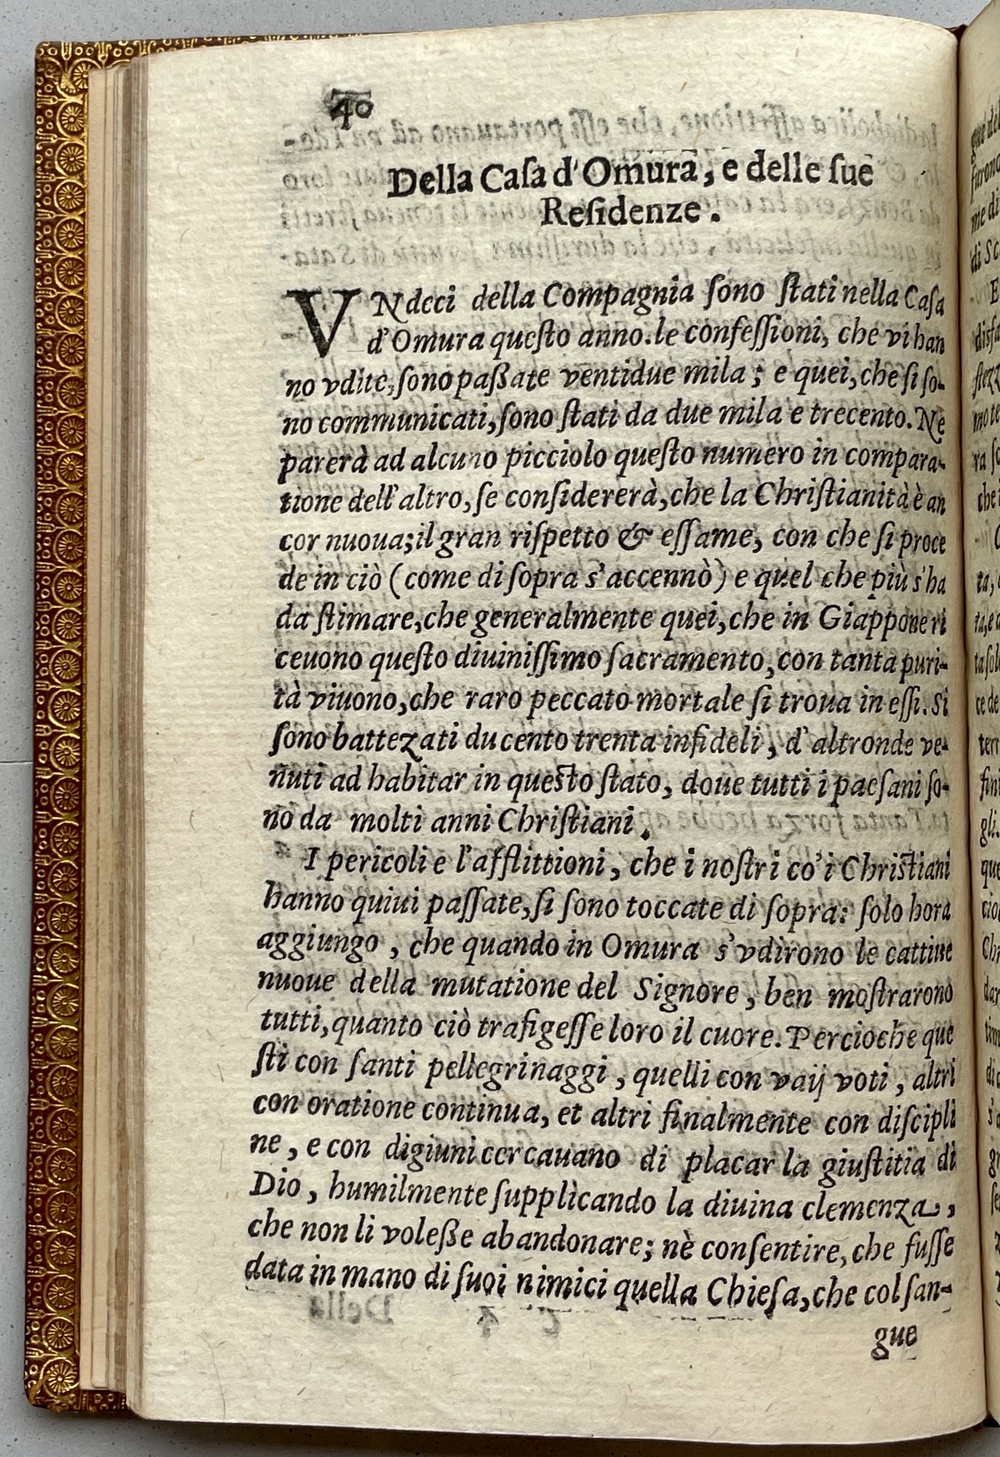 40
Della Caſa d'Omura, e delle ſue
Reſidenze.
VNdeci della Compagnia ſono ſtati nella Caſa
d'Omura queſto anno. le confeſſioni, che vi han
no vdite, ſono paßate ventidue mila; e quei, che ſi ſo-
no communicati, ſono ſtati da due mila e trecento. Nè
parerà ad alcuno picciolo queſto numero in compara-
tione dell'altro, ſe conſidererà, che la Chriſtianità è an
cor nuoua; il gran riſpetto & eſſame, con che ſi proce
de in ciò (come di ſopra s'accennò) e quel che più s'ha
da ſtimare, che generalmente quei, che in Giappone ri
ceuono queſto diuiniſſimo ſacramento, con tanta puri-
tà viuono, che raro peccato mortale ſi troua in eſſi. Si
ſono battezati ducento trenta infideli, d'altronde ve-
nuti ad habitar in queſto ſtato, doue tutti i paeſani ſo-
no da molti anni Chriſtiani.
I pericoli e l'afflittioni, che i noſtri co'i Chriſtiani
hanno quiui paſſate, ſi ſono toccate di ſopra: ſolo hora
aggiungo, che quando in Omura s'vdirono le cattiue
nuoue della mutatione del Signore, ben moſtrarono
tutti, quanto ciò trafigeſſe loro il cuore. Percioche que
ſti con ſanti pellegrinaggi, quelli con vaij voti, altri
con oratione continua, et altri finalmente con diſcipli
ne, e con digiuni cercauano di placar la giuſtitia di
Dio, humilmente ſupplicando la diuina clemenza,
che non li voleße abandonare; nè conſentire, che fuſſe
data in mano di ſuoi nimici quella Chieſa, che col ſan-
gue